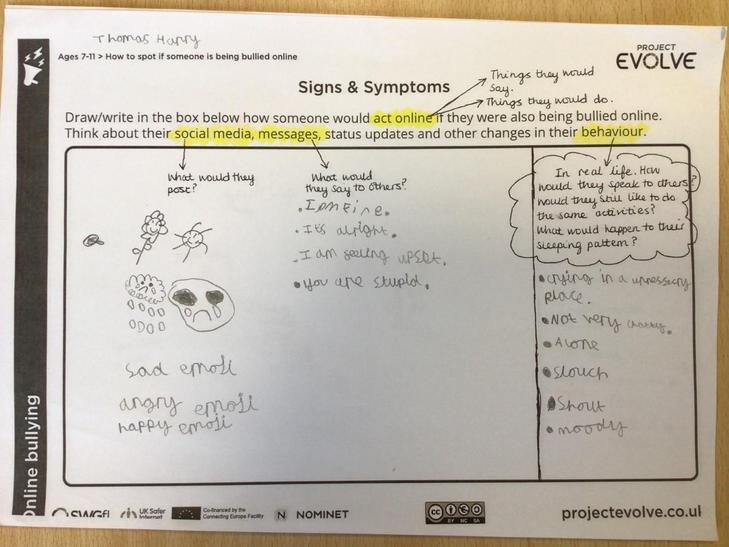 Thomas Harry
Ages 7-11 > How to spot if someone is being bullied online
PROJECT
EVOLVE
Signs & Symptoms
Things they would
say.
Things they would do.
Draw/write in the box below how someone would act online if they were also being bullied online.
Think about their social media, messages, status updates and other changes in their behaviour.
What would they
post?
sad emoji
angry emoji
happy emoji
What would
they say to others?
. I am fine.
. It's alright.
. I am feeling upset.
• you are stupid.
In real life. How
would they speak to others?
would they still like to do
the same activities?
What would happen to their
sleeping pattern?
• crying in a unnessicry
place.
• Not very chatty.
• Alone
• slouch
• Shout
• moody
Online bullying
SWGfl
UK Safer
Internet
Co-financed by the
Connecting Europe Facility
N NOMINET
cc
BY NC SA
projectevolve.co.uk